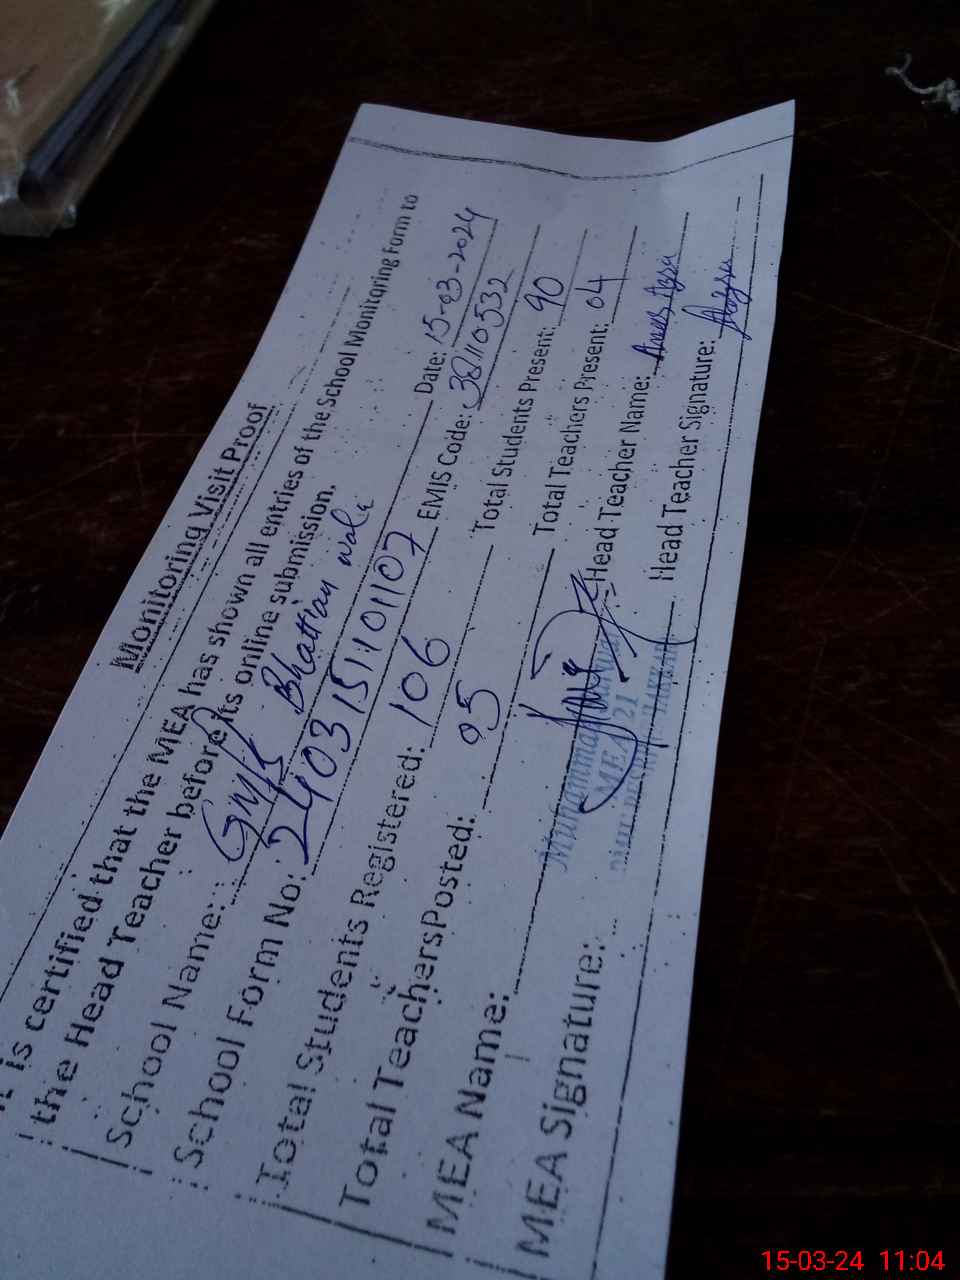 Monitoring Visit Proof
is certified that the MEA has shown all entries of the School Monitoring Form to
the Head Teacher before its online submission.
School Name: Bhattian wala Date: 15-03-2024
School Form No: 2403151101107 EMIS Code: 38110532
Total Students Registered: 106 Total Students Present: 90
Total Teachers Posted: 05 Total Teachers Present: 04
MEA Name: Muhammad Head Teacher Name:
MEA 21
MEA Signature: Head Teacher Signature:
15-03-24 11:04